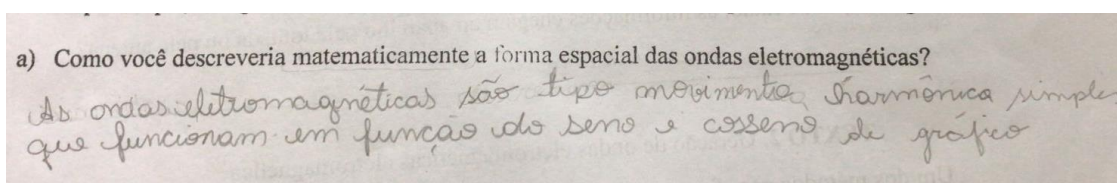 a) Como você descreveria matematicamente a forma espacial das ondas eletromagnéticas?
As ondas eletromagnéticas são tipo movimento harmônica simple
que funcionam em função do seno e cosseno de gráfico